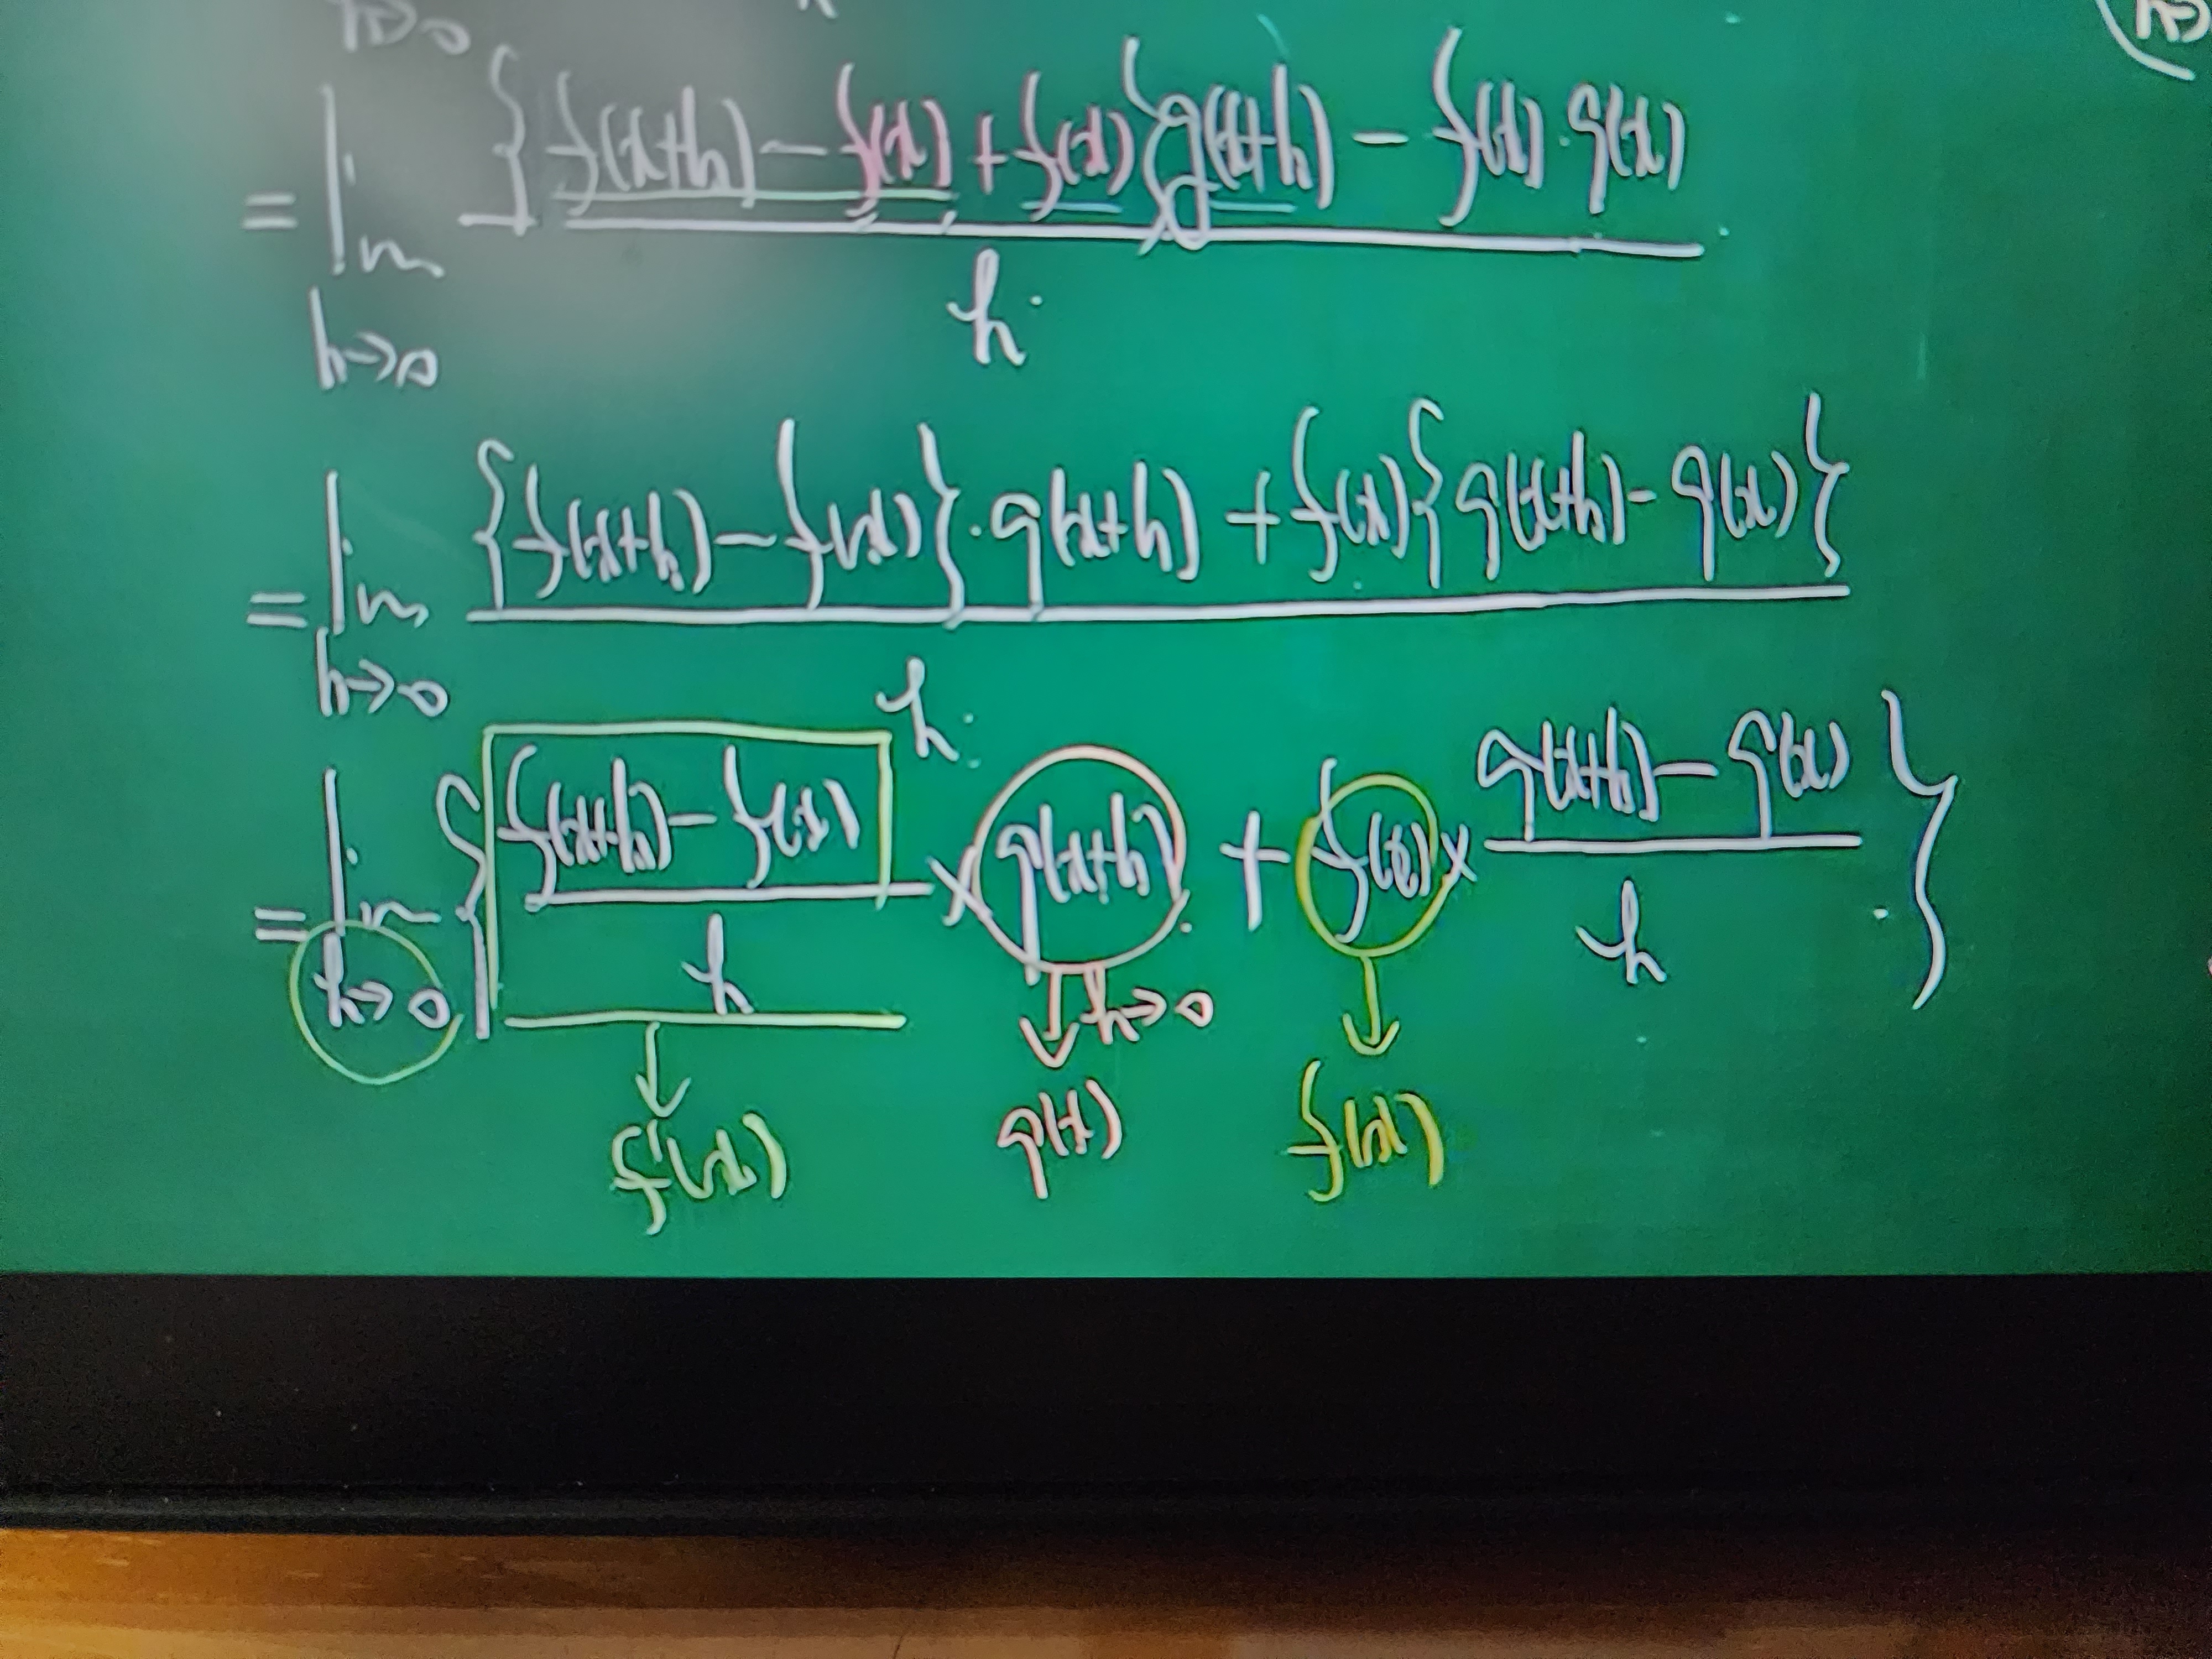 h→0
= lim h→0 {f(x+h) - f(x) + f(x)}g(x+h) - f(x)·g(x) / h
= lim h→0 {f(x+h) - f(x)}·g(x+h) + f(x){g(x+h) - g(x)} / h
= lim h→0 { f(x+h) - f(x) / h × g(x+h) + f(x) × g(x+h) - g(x) / h }
↓ ↓ h→0 ↓
f'(x) g(x) f(x)